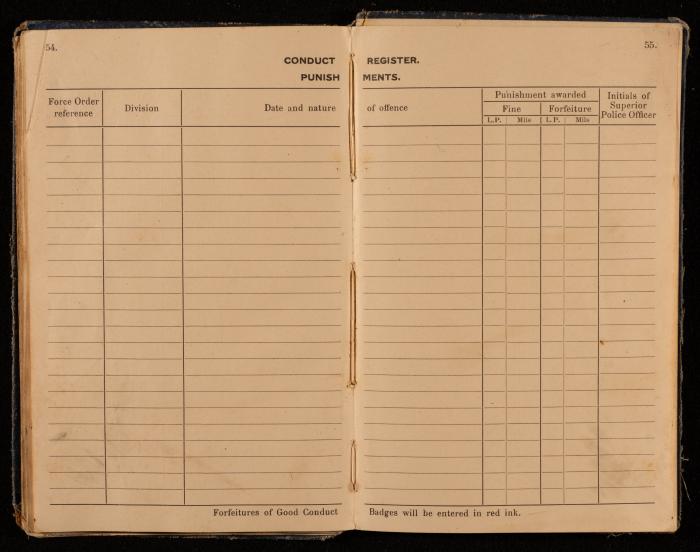 54.
55.
CONDUCT REGISTER.
PUNISHMENTS.
Force Order reference
Division
Date and nature of offence
Punishment awarded
Fine
Forfeiture
L.P. Mils L.P. Mils
Initials of Superior Police Officer
Forfeitures of Good Conduct Badges will be entered in red ink.